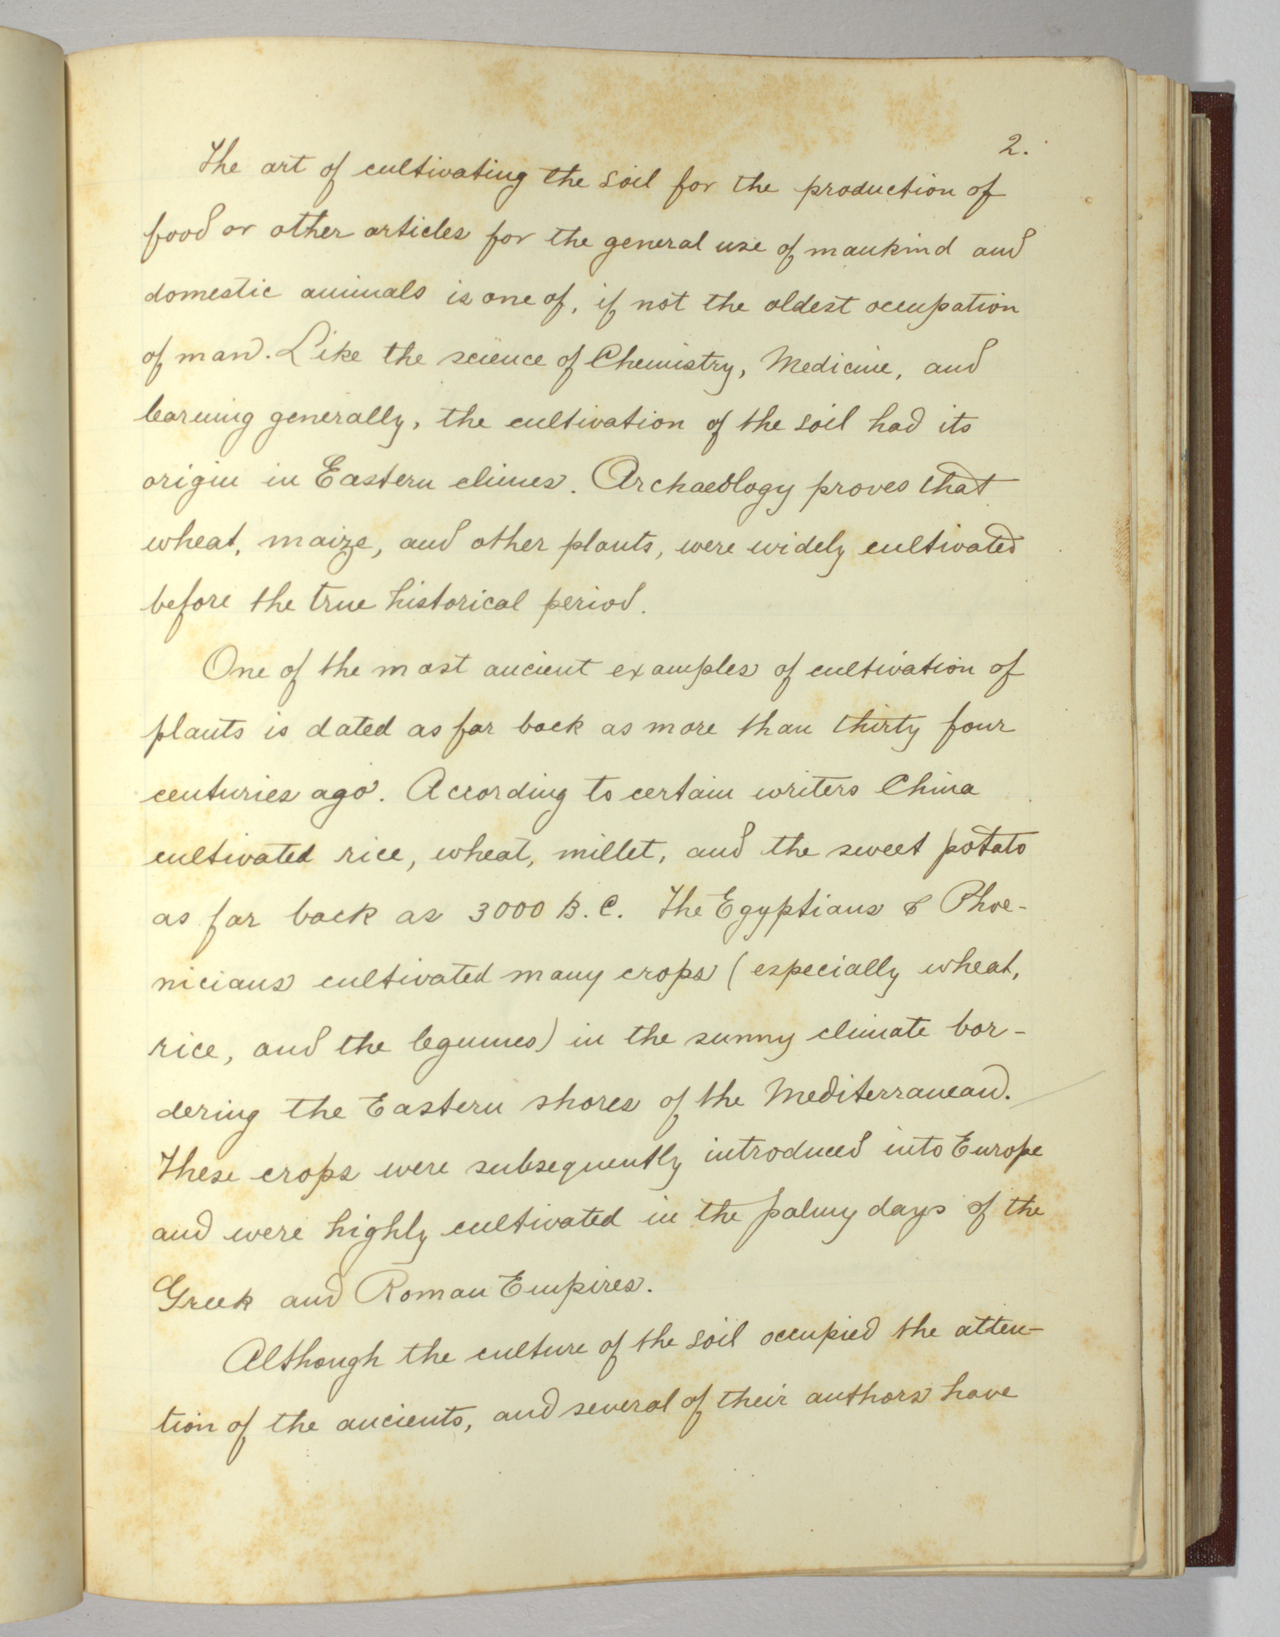 2.
The art of cultivating the soil for the production of
food or other articles for the general use of mankind and
domestic animals is one of, if not the oldest occupation
of man. Like the science of Chemistry, Medicine, and
learning generally, the cultivation of the soil had its
origin in Eastern climes. Archaeology proves that
wheat, maize, and other plants, were widely cultivated
before the true historical period.
One of the most ancient examples of cultivation of
plants is dated as far back as more than thirty four
centuries ago. Acording to certain writers China
cultivated rice, wheat, millet, and the sweet potato
as far back as 3000 B.C. The Egyptians & Phoe-
nicians cultivated many crops (especially wheat,
rice, and the legumes) in the sunny climate bor-
dering the Eastern shores of the Mediterranean.
These crops were subsequently introduced into Europe
and were highly cultivated in the palmy days of the
Greek and Roman Empires.
Although the culture of the soil occupied the atten-
tion of the ancients, and several of their authors have